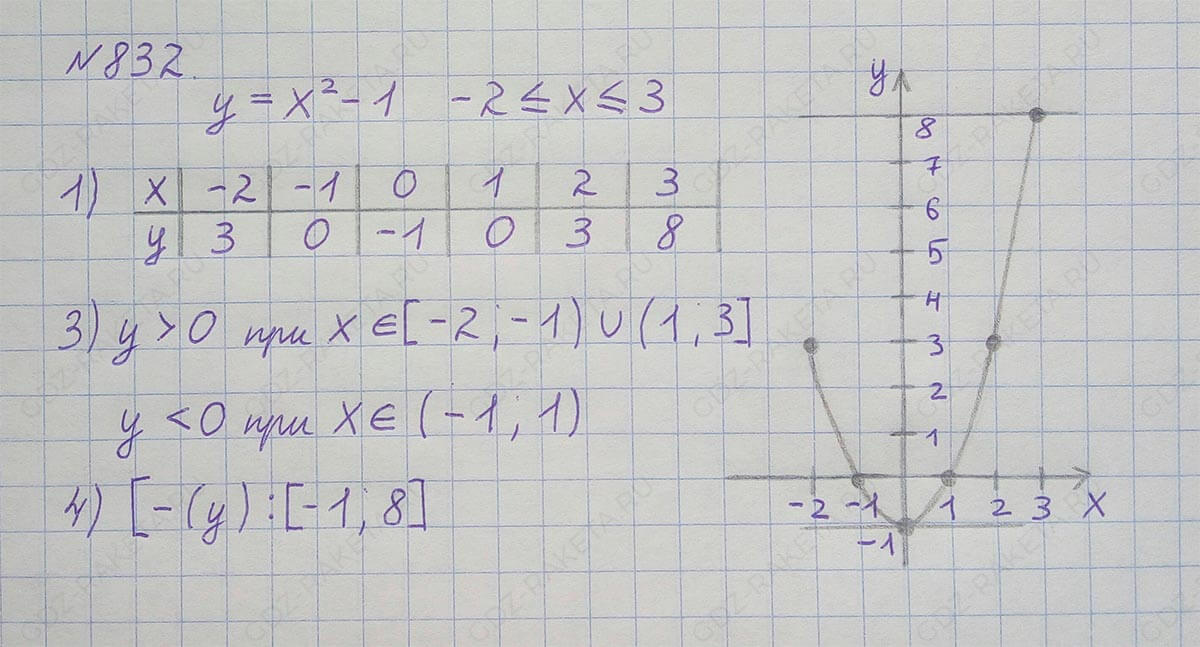 N832.
y = x² - 1 -2 ≤ x ≤ 3
1) x -2 -1 0 1 2 3
y 3 0 -1 0 3 8
3) y > 0 при x ∈ [-2; -1) ∪ (1; 3]
y < 0 при x ∈ (-1; 1)
4) [-(y) : [-1; 8]
y
8
7
6
5
4
3
2
1
-2 -1 1 2 3 x
-1